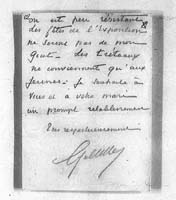 On est peu résistant
des fêtes de l'Exposition
ne seront pas de mon
goût. des tréteaux
ne conviennent qu'aux
jeunes. Je souhaite à
vous et à votre mari
un prompt rétablissement
Bien respectueusement